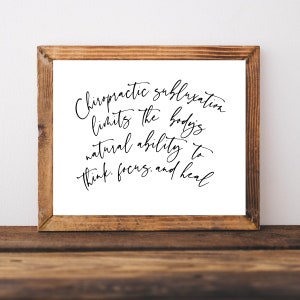 Chiropractic subluxation
limits the body's
natural ability to
think, focus, and heal